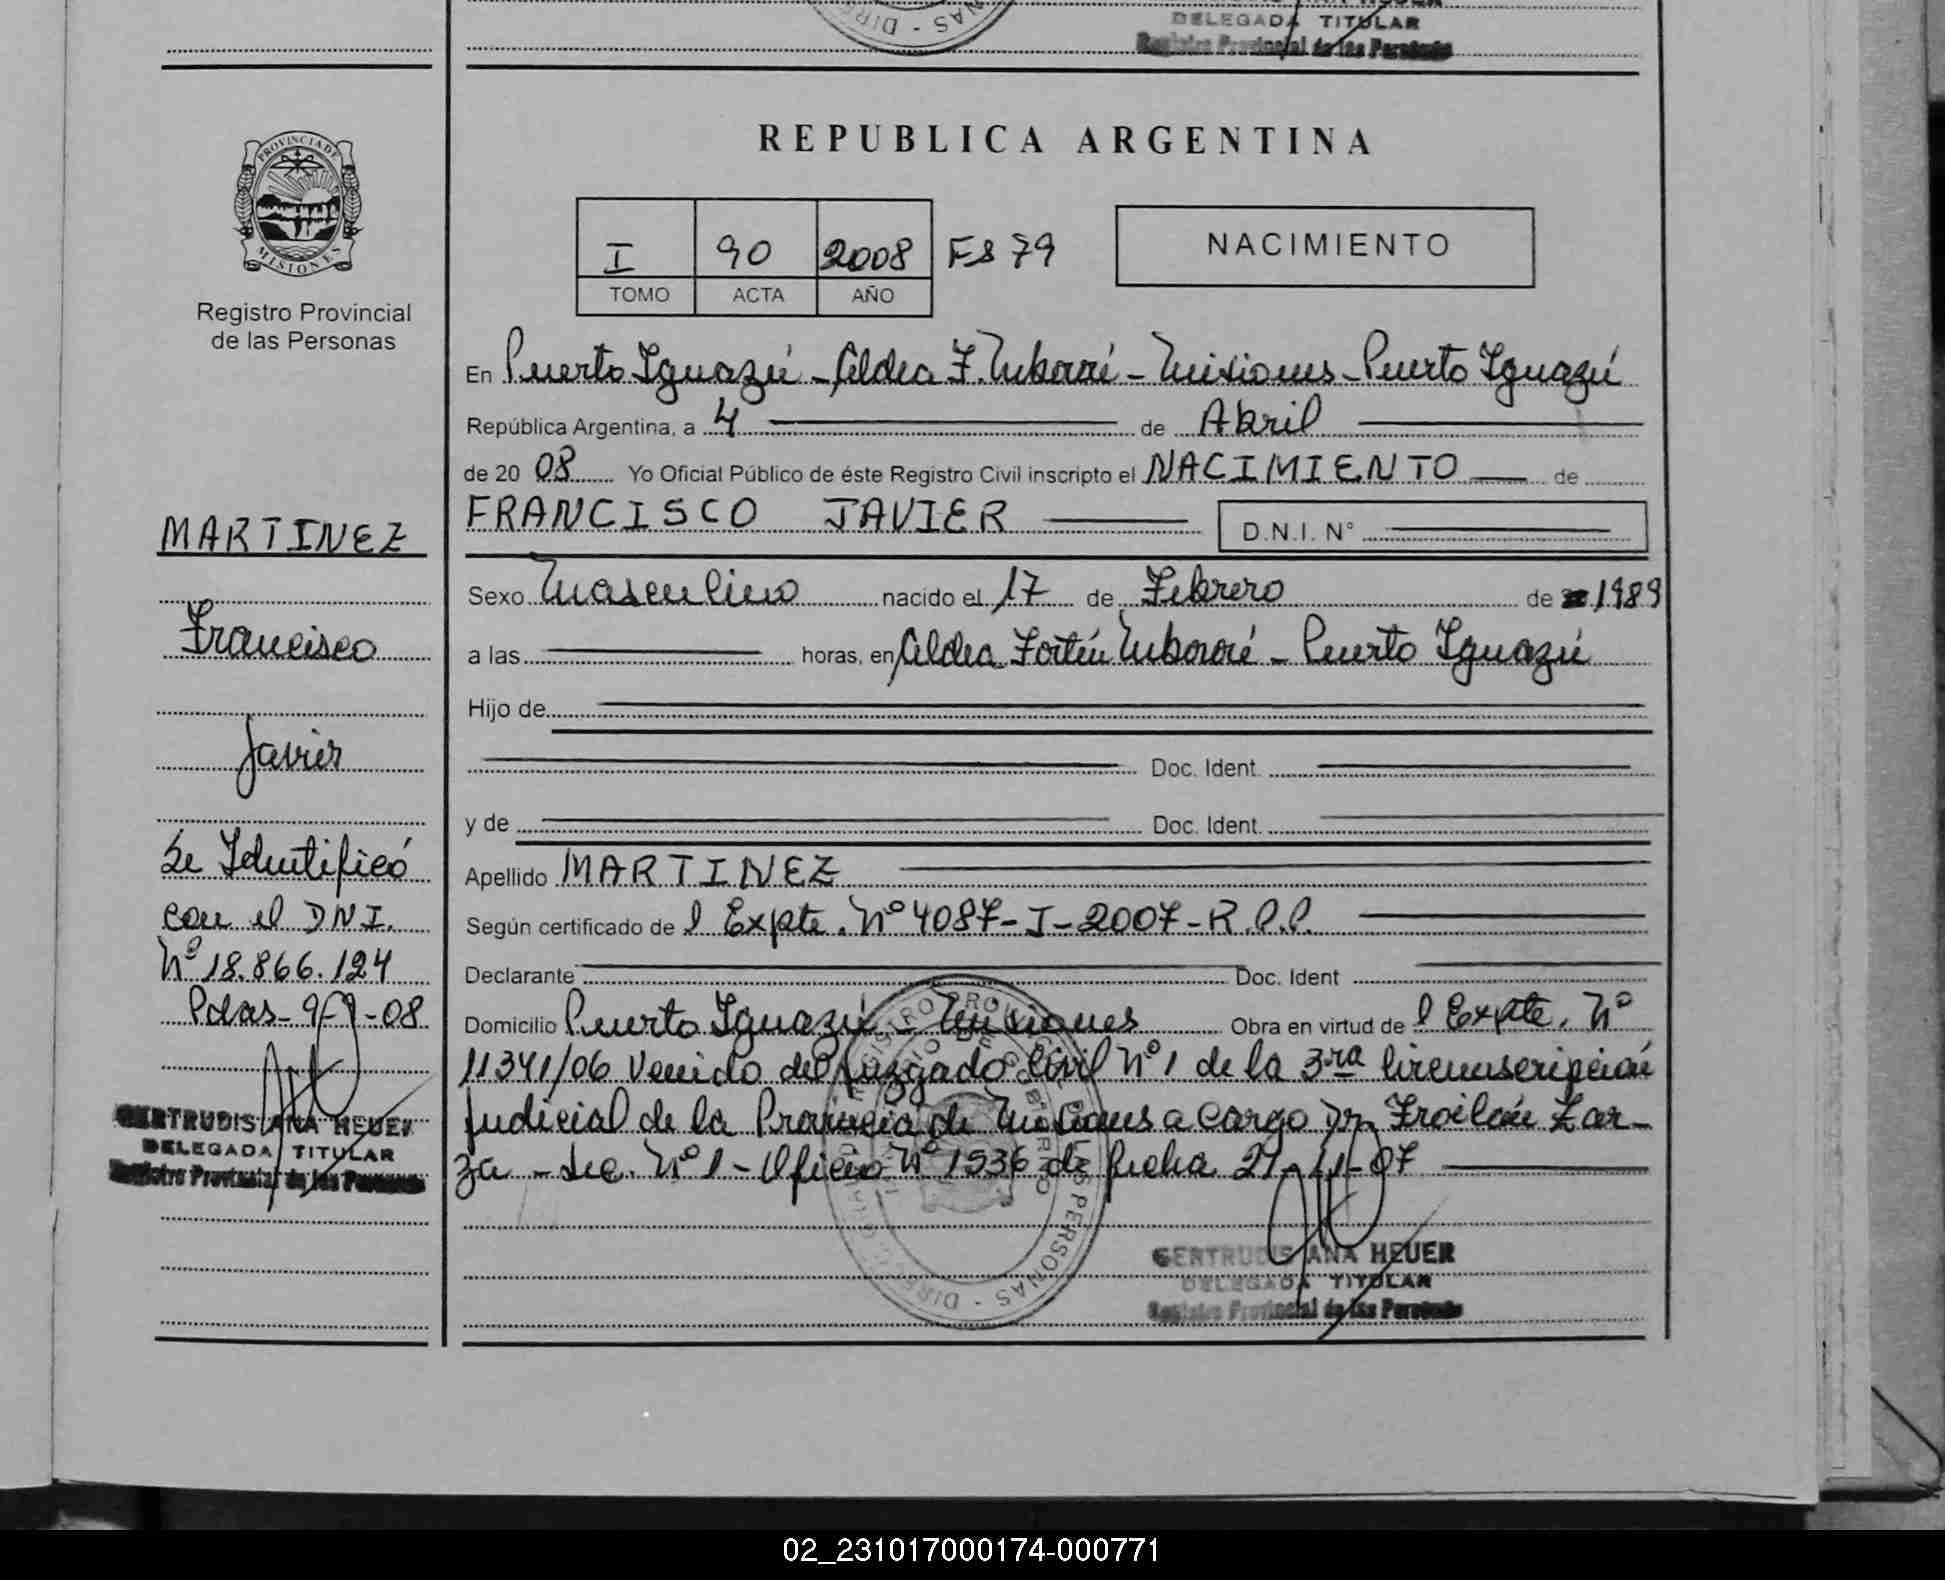 DELEGADA TITULAR
Registro Provincial de las Personas
PROVINCIA DE
MISIONES
Registro Provincial
de las Personas
REPUBLICA ARGENTINA
I 90 2008 Fs 79
TOMO ACTA AÑO
NACIMIENTO
En Puerto Iguazú - Aldea F. Mbororé - Misiones - Puerto Iguazú
República Argentina, a 4 de Abril
de 20 08 Yo Oficial Público de éste Registro Civil inscripto el NACIMIENTO de
FRANCISCO JAVIER D.N.I. N°
Sexo Masculino nacido el 17 de Febrero de 1989
a las horas, en Aldea Fortín Mbororé - Puerto Iguazú
Hijo de
Doc. Ident.
y de Doc. Ident.
Apellido MARTINEZ
Según certificado de l Expte. N° 4087-I-2007-R.P.P.
Declarante Doc. Ident
Domicilio Puerto Iguazú - Misiones Obra en virtud de l Expte. N°
11341/06 Venido del Juzgado Civil N° 1 de la 3ra Circunscripción
Judicial de la Provincia de Misiones a cargo Dr. Froilán Zar-
za - Sec. N° 1 - Oficio N° 1536 de fecha 27-11-07
GERTRUDIS ANA HEUER
DELEGADA TITULAR
Registro Provincial de las Personas
MARTINEZ
Francisco
Javier
Se Identificó
con el DNI.
N° 18.866.124
Pdas- 9-9-08
GERTRUDIS ANA HEUER
DELEGADA TITULAR
Registro Provincial de las Personas
02_231017000174-000771